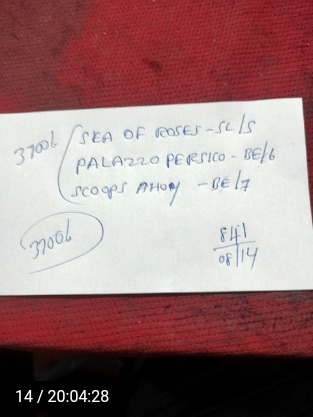 37006 SEA OF ROSES - SL/5
PALAZZO PERSICO - BE/6
SCOOPS AHOY - BE/7
37006
841
08/14
14 / 20:04:28